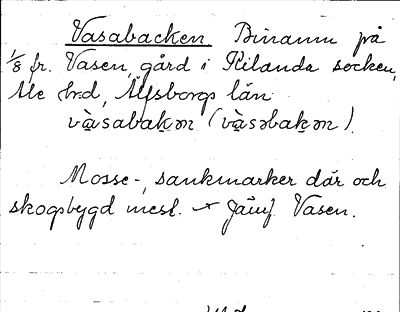 Vasabacken. Binamn på
1/8 fr. Vasen, gård i Kilanda socken,
Ale hrd, Älfsborgs län
vàsabakən (vàsəbakən).
Mosse-, sankmarker där och
skogsbygd mest. Jämf. Vasen.